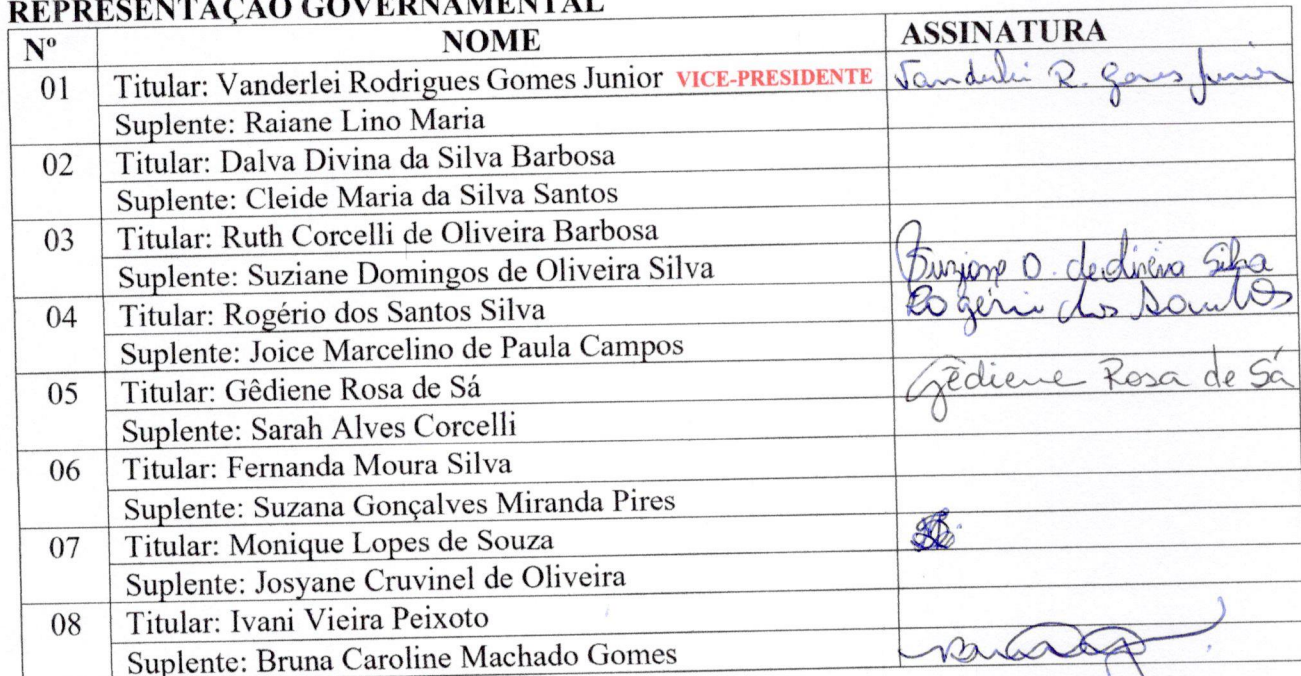 REPRESENTAÇÃO GOVERNAMENTAL
Nº NOME ASSINATURA
01 Titular: Vanderlei Rodrigues Gomes Junior VICE-PRESIDENTE Vanderlei R. Gomes Junior
Suplente: Raiane Lino Maria
02 Titular: Dalva Divina da Silva Barbosa
Suplente: Cleide Maria da Silva Santos
03 Titular: Ruth Corcelli de Oliveira Barbosa
Suplente: Suziane Domingos de Oliveira Silva Suziane D. de Oliveira Silva
04 Titular: Rogério dos Santos Silva Rogério dos Santos
Suplente: Joice Marcelino de Paula Campos
05 Titular: Gêdiene Rosa de Sá Gêdiene Rosa de Sá
Suplente: Sarah Alves Corcelli
06 Titular: Fernanda Moura Silva
Suplente: Suzana Gonçalves Miranda Pires
07 Titular: Monique Lopes de Souza
Suplente: Josyane Cruvinel de Oliveira
08 Titular: Ivani Vieira Peixoto
Suplente: Bruna Caroline Machado Gomes